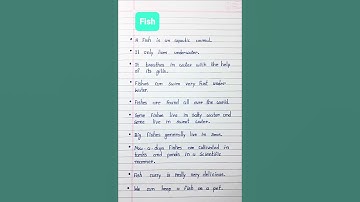 Fish
• A fish is an aquatic animal.
• It only lives underwater.
• It breathes in water with the help
of its gills.
• Fishes can swim very fast under
water.
• Fishes are found all over the world.
• Some fishes live in salty water and
some live in sweet water.
• Big fishes generally live in seas.
• Now a days fishes are cultivated in
tanks and ponds in a scientific
manner.
• Fish curry is really very delicious.
• We can keep a fish as a pet.